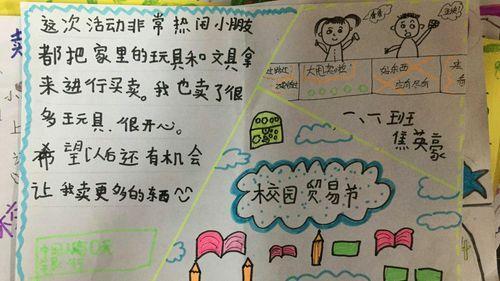 这次活动非常热闹小朋友
都把家里的玩具和文具拿
来进行买卖。我也卖了很
多玩具，很开心。
希望以后还有机会
让我卖更多的东西
大甩卖啦
好东西
应有尽有
一、六班
焦英豪
校园贸易节